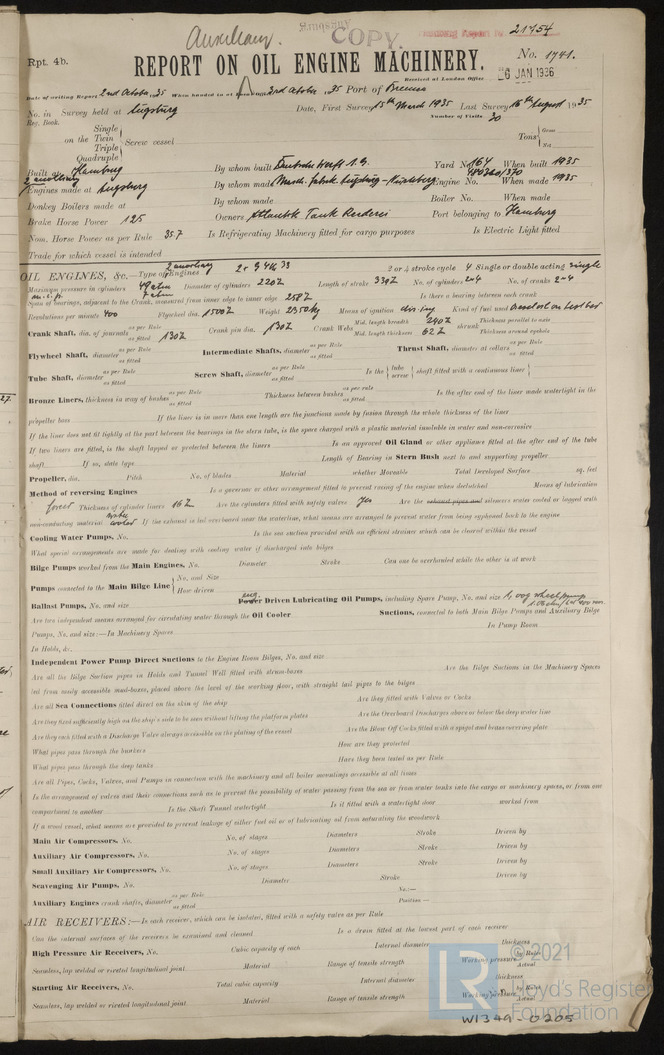 Auxiliary. COPY. 21754
Rpt. 4b. REPORT ON OIL ENGINE MACHINERY. No. 1741.
Received at London Office 6 JAN 1936
Date of writing Report 2nd October 1935 When handed in at Local Office 3rd October 1935 Port of Bremen
No. in Survey held at Augsburg Date, First Survey 15th March 1935 Last Survey 16th August 1935
Reg. Book. Number of Visits 30
Single
on the Twin
Triple
Quadruple
Screw vessel Tons Gross Net
Built at Hamburg By whom built Deutsche Werft A.G. Yard No. 164 When built 1935
2 auxiliary
Engines made at Augsburg By whom made Masch. fabrik Augsburg-Nürnberg Engine No. When made 1935
Donkey Boilers made at By whom made Boiler No. When made
Brake Horse Power 125 Owners Atlantik Tank Rederei Port belonging to Hamburg
Nom. Horse Power as per Rule 35.7 Is Refrigerating Machinery fitted for cargo purposes Is Electric Light fitted
Trade for which vessel is intended
OIL ENGINES, &c.—Type of Engines 2 auxiliary 2 or 4 stroke cycle 4 Single or double acting single
Maximum pressure in cylinders 49 atm Diameter of cylinders 220 Length of stroke 330 No. of cylinders 2×4 No. of cranks 2×4
Span of bearings, adjacent to the Crank, measured from inner edge to inner edge 258 Is there a bearing between each crank
Revolutions per minute 400 Flywheel dia. 1500 Weight 2350 kg Means of ignition Kind of fuel used
Crank Shaft, dia. of journals as per Rule as fitted 130 Crank pin dia. 130 Crank Webs Mid. length breadth 240 Mid. length thickness 62 shrunk Thickness parallel to axis Thickness around eyehole
Flywheel Shaft, diameter as per Rule as fitted Intermediate Shafts, diameter as per Rule as fitted Thrust Shaft, diameter at collars as per Rule as fitted
Tube Shaft, diameter as per Rule as fitted Screw Shaft, diameter as per Rule as fitted Is the tube screw shaft fitted with a continuous liner
Bronze Liners, thickness in way of bushes as per Rule as fitted Thickness between bushes as per rule as fitted Is the after end of the liner made watertight in the
propeller boss If the liner is in more than one length are the junctions made by fusion through the whole thickness of the liner
If the liner does not fit tightly at the part between the bearings in the stern tube, is the space charged with a plastic material insoluble in water and non-corrosive
If two liners are fitted, is the shaft lapped or protected between the liners Is an approved Oil Gland or other appliance fitted at the after end of the tube
shaft If so, state type Length of Bearing in Stern Bush next to and supporting propeller
Propeller, dia. Pitch No. of blades Material whether Moveable Total Developed Surface sq. feet
Method of reversing Engines Is a governor or other arrangement fitted to prevent racing of the engine when declutched Means of lubrication
forced Thickness of cylinder liners 16 Are the cylinders fitted with safety valves Yes Are the exhaust pipes and silencers water cooled or lagged with
non-conducting material water cooled If the exhaust is led overboard near the waterline, what means are arranged to prevent water being syphoned back to the engine
Cooling Water Pumps, No. Is the sea suction provided with an efficient strainer which can be cleared within the vessel
What special arrangements are made for dealing with cooling water if discharged into bilges
Bilge Pumps worked from the Main Engines, No. Diameter Stroke Can one be overhauled while the other is at work
Pumps connected to the Main Bilge Line No. and Size How driven
Ballast Pumps, No. and size Power Driven Lubricating Oil Pumps, including Spare Pump, No. and size
Are two independent means arranged for circulating water through the Oil Cooler Suctions, connected to both Main Bilge Pumps and Auxiliary Bilge
Pumps, No. and size:—In Machinery Spaces In Pump Room
In Holds, &c.
Independent Power Pump Direct Suctions to the Engine Room Bilges, No. and size
Are all the Bilge Suction pipes in Holds and Tunnel Well fitted with strum-boxes Are the Bilge Suctions in the Machinery Spaces
led from easily accessible mud-boxes, placed above the level of the working floor, with straight tail pipes to the bilges
Are all Sea Connections fitted direct on the skin of the ship Are they fitted with Valves or Cocks
Are they fixed sufficiently high on the ship's side to be seen without lifting the platform plates Are the Overboard Discharges above or below the deep water line
Are they each fitted with a Discharge Valve always accessible on the plating of the vessel Are the Blow Off Cocks fitted with a spigot and brass covering plate
What pipes pass through the bunkers How are they protected
What pipes pass through the deep tanks Have they been tested as per Rule
Are all Pipes, Cocks, Valves, and Pumps in connection with the machinery and all boiler mountings accessible at all times
Is the arrangement of valves and their connections such as to prevent the possibility of water passing from the sea or from water tanks into the cargo or machinery spaces, or from one
compartment to another Is the Shaft Tunnel watertight Is it fitted with a watertight door worked from
If a wood vessel, what means are provided to prevent leakage of either fuel oil or of lubricating oil from saturating the woodwork
Main Air Compressors, No. No. of stages Diameters Stroke Driven by
Auxiliary Air Compressors, No. No. of stages Diameters Stroke Driven by
Small Auxiliary Air Compressors, No. No. of stages Diameters Stroke Driven by
Scavenging Air Pumps, No. Diameter Stroke Driven by
Auxiliary Engines crank shafts, diameter as per Rule as fitted No.:— Position:—
AIR RECEIVERS:—Is each receiver, which can be isolated, fitted with a safety valve as per Rule
Can the internal surfaces of the receivers be examined and cleaned Is a drain fitted at the lowest part of each receiver
High Pressure Air Receivers, No. Cubic capacity of each Internal diameter thickness
Seamless, lap welded or riveted longitudinal joint Material Range of tensile strength Working pressure by Rules Actual
Starting Air Receivers, No. Total cubic capacity Internal diameter thickness
Seamless, lap welded or riveted longitudinal joint Material Range of tensile strength Working pressure by Rules Actual
LR © 2021
Lloyd's Register
Foundation
W1349-0205